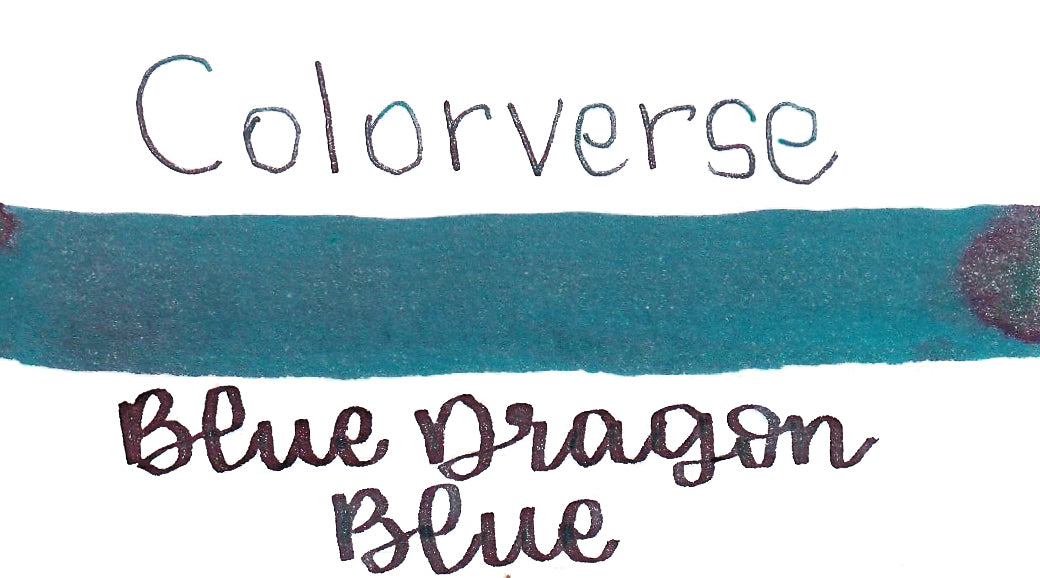 Colorverse
Blue Dragon
Blue